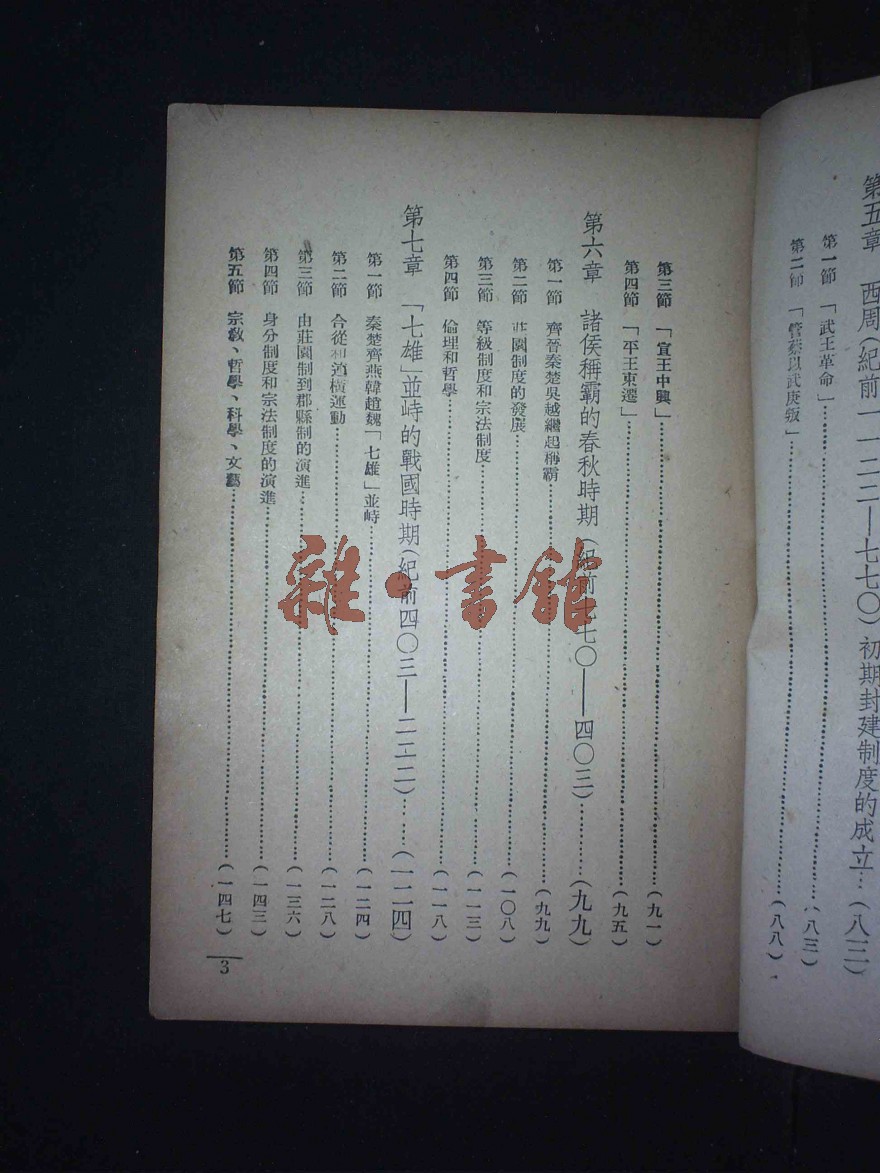 第五章　西周(紀前一一二二—七七〇)初期封建制度的成立…(八三)
第一節　「武王革命」……(八三)
第二節　「管蔡以武庚叛」……(八八)
第三節　「宣王中興」……(九一)
第四節　「平王東遷」……(九五)
第六章　諸侯稱霸的春秋時期(紀前七七〇——四〇三)……(九九)
第一節　齊晉秦楚吳越繼起稱霸……(九九)
第二節　莊園制度的發展……(一〇八)
第三節　等級制度和宗法制度……(一一三)
第四節　倫理和哲學……(一一八)
第七章　「七雄」並峙的戰國時期(紀前四〇三—二二二)……(一二四)
第一節　秦楚齊燕韓趙魏「七雄」並峙……(一二四)
第二節　合從和連橫運動……(一二八)
第三節　由莊園制到郡縣制的演進……(一三六)
第四節　身分制度和宗法制度的演進……(一四三)
第五節　宗教、哲學、科學、文藝……(一四七)
3
雜·書館